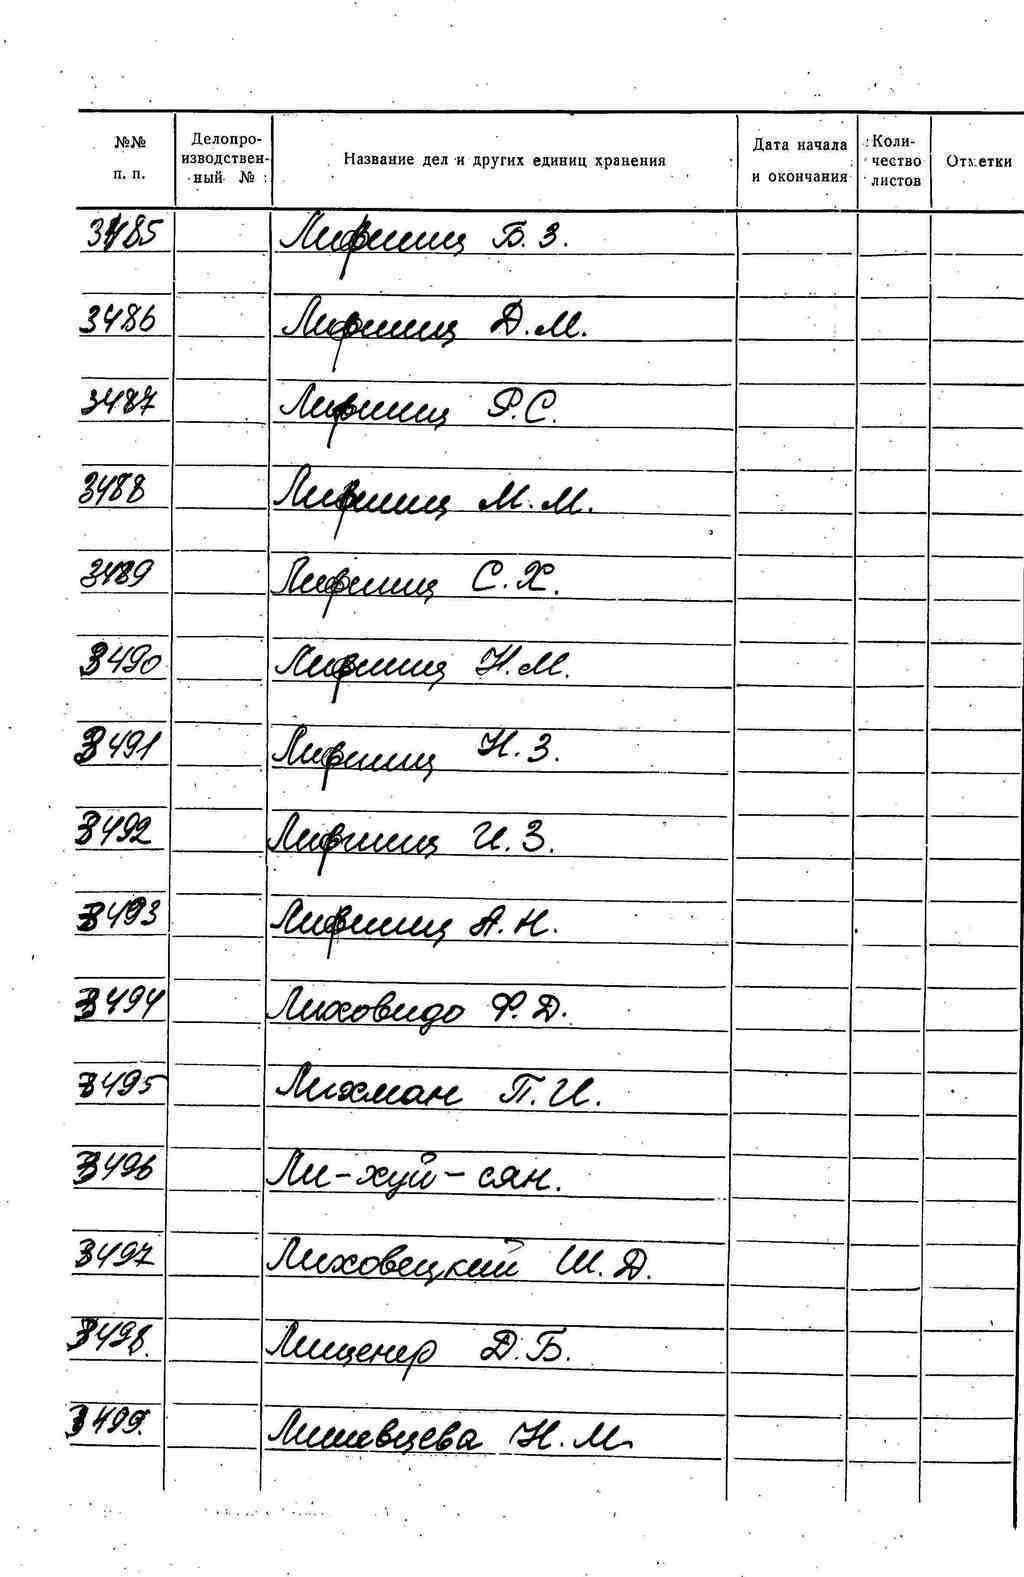 №№ п. п. Делопроизводственный № Название дел и других единиц хранения Дата начала и окончания Количество листов Отметки
3485 Лифшиц Б. З.
3486 Лифшиц Д. М.
3487 Лифшиц Р. С.
3488 Лифшиц М. М.
3489 Лифшиц С. Х.
3490 Лифшиц Н. М.
3491 Лифшиц Н. З.
3492 Лифшиц И. З.
3493 Лифшиц А. Н.
3494 Лиховидо Ф. Д.
3495 Лихман П. И.
3496 Ли-хуй-сян.
3497 Лиховецкий Ш. Д.
3498. Лищенер Д. Б.
3499. Лишевцева Н. М.